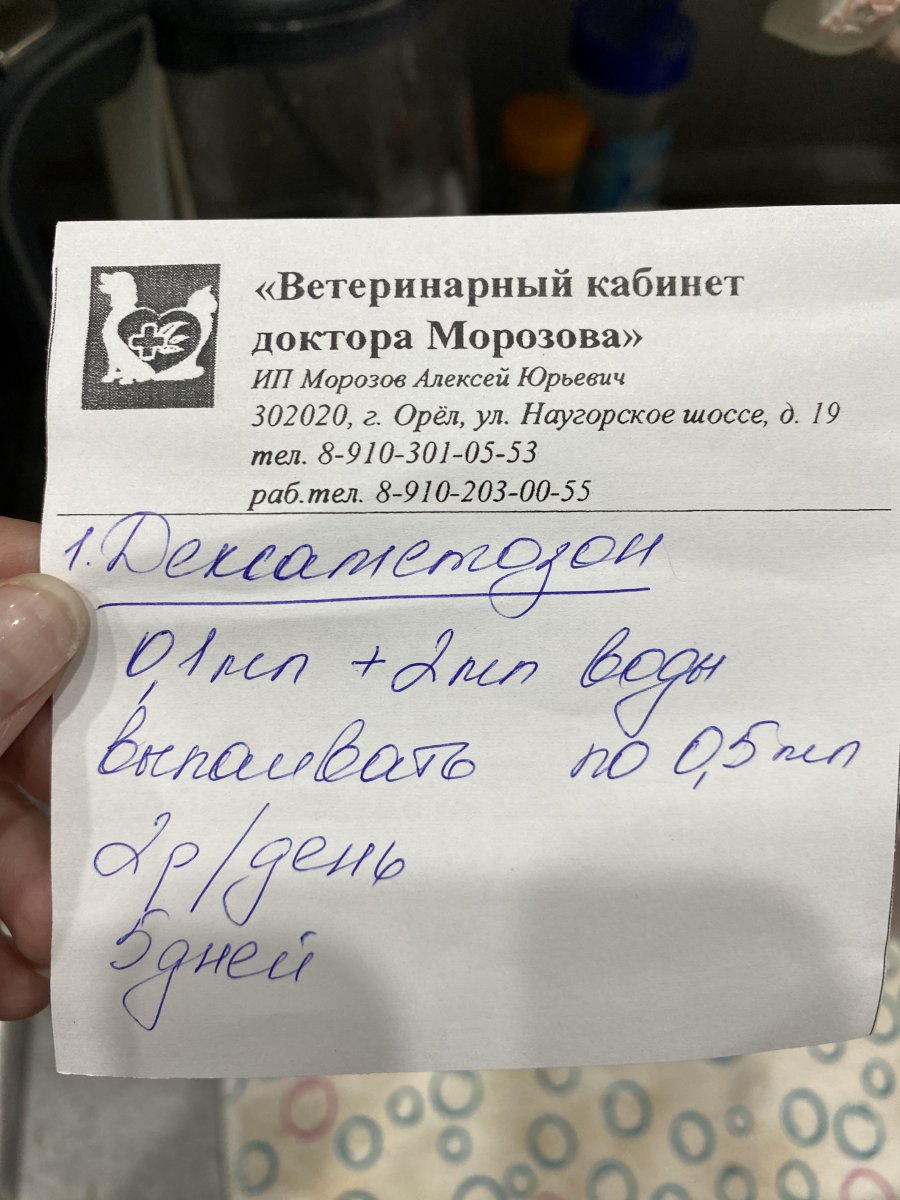 «Ветеринарный кабинет
доктора Морозова»
ИП Морозов Алексей Юрьевич
302020, г. Орёл, ул. Наугорское шоссе, д. 19
тел. 8-910-301-05-53
раб.тел. 8-910-203-00-55
1. Дексаметозон
0,1 мл + 2 мл воды
выпаивать по 0,5 мл
2р/день
5 дней